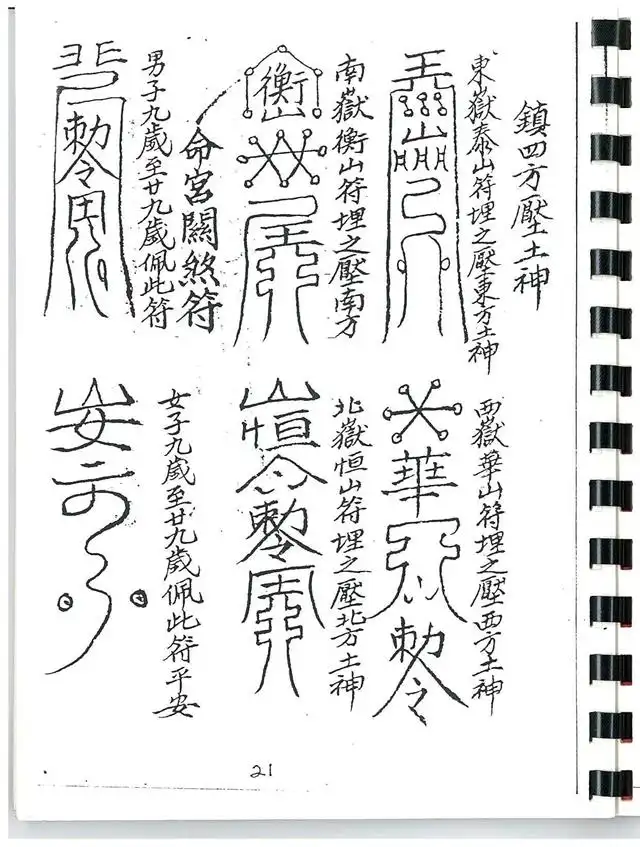 鎮四方壓土神
東嶽泰山符埋之壓東方土神
西嶽華山符埋之壓西方土神
華
勅令
南嶽衡山符埋之壓南方
衡山
北嶽恒山符埋之壓北方土神
山恒
勅令
命宮關煞符
男子九歲至廿九歲佩此符
勅令
女子九歲至廿九歲佩此符平安
山安
21